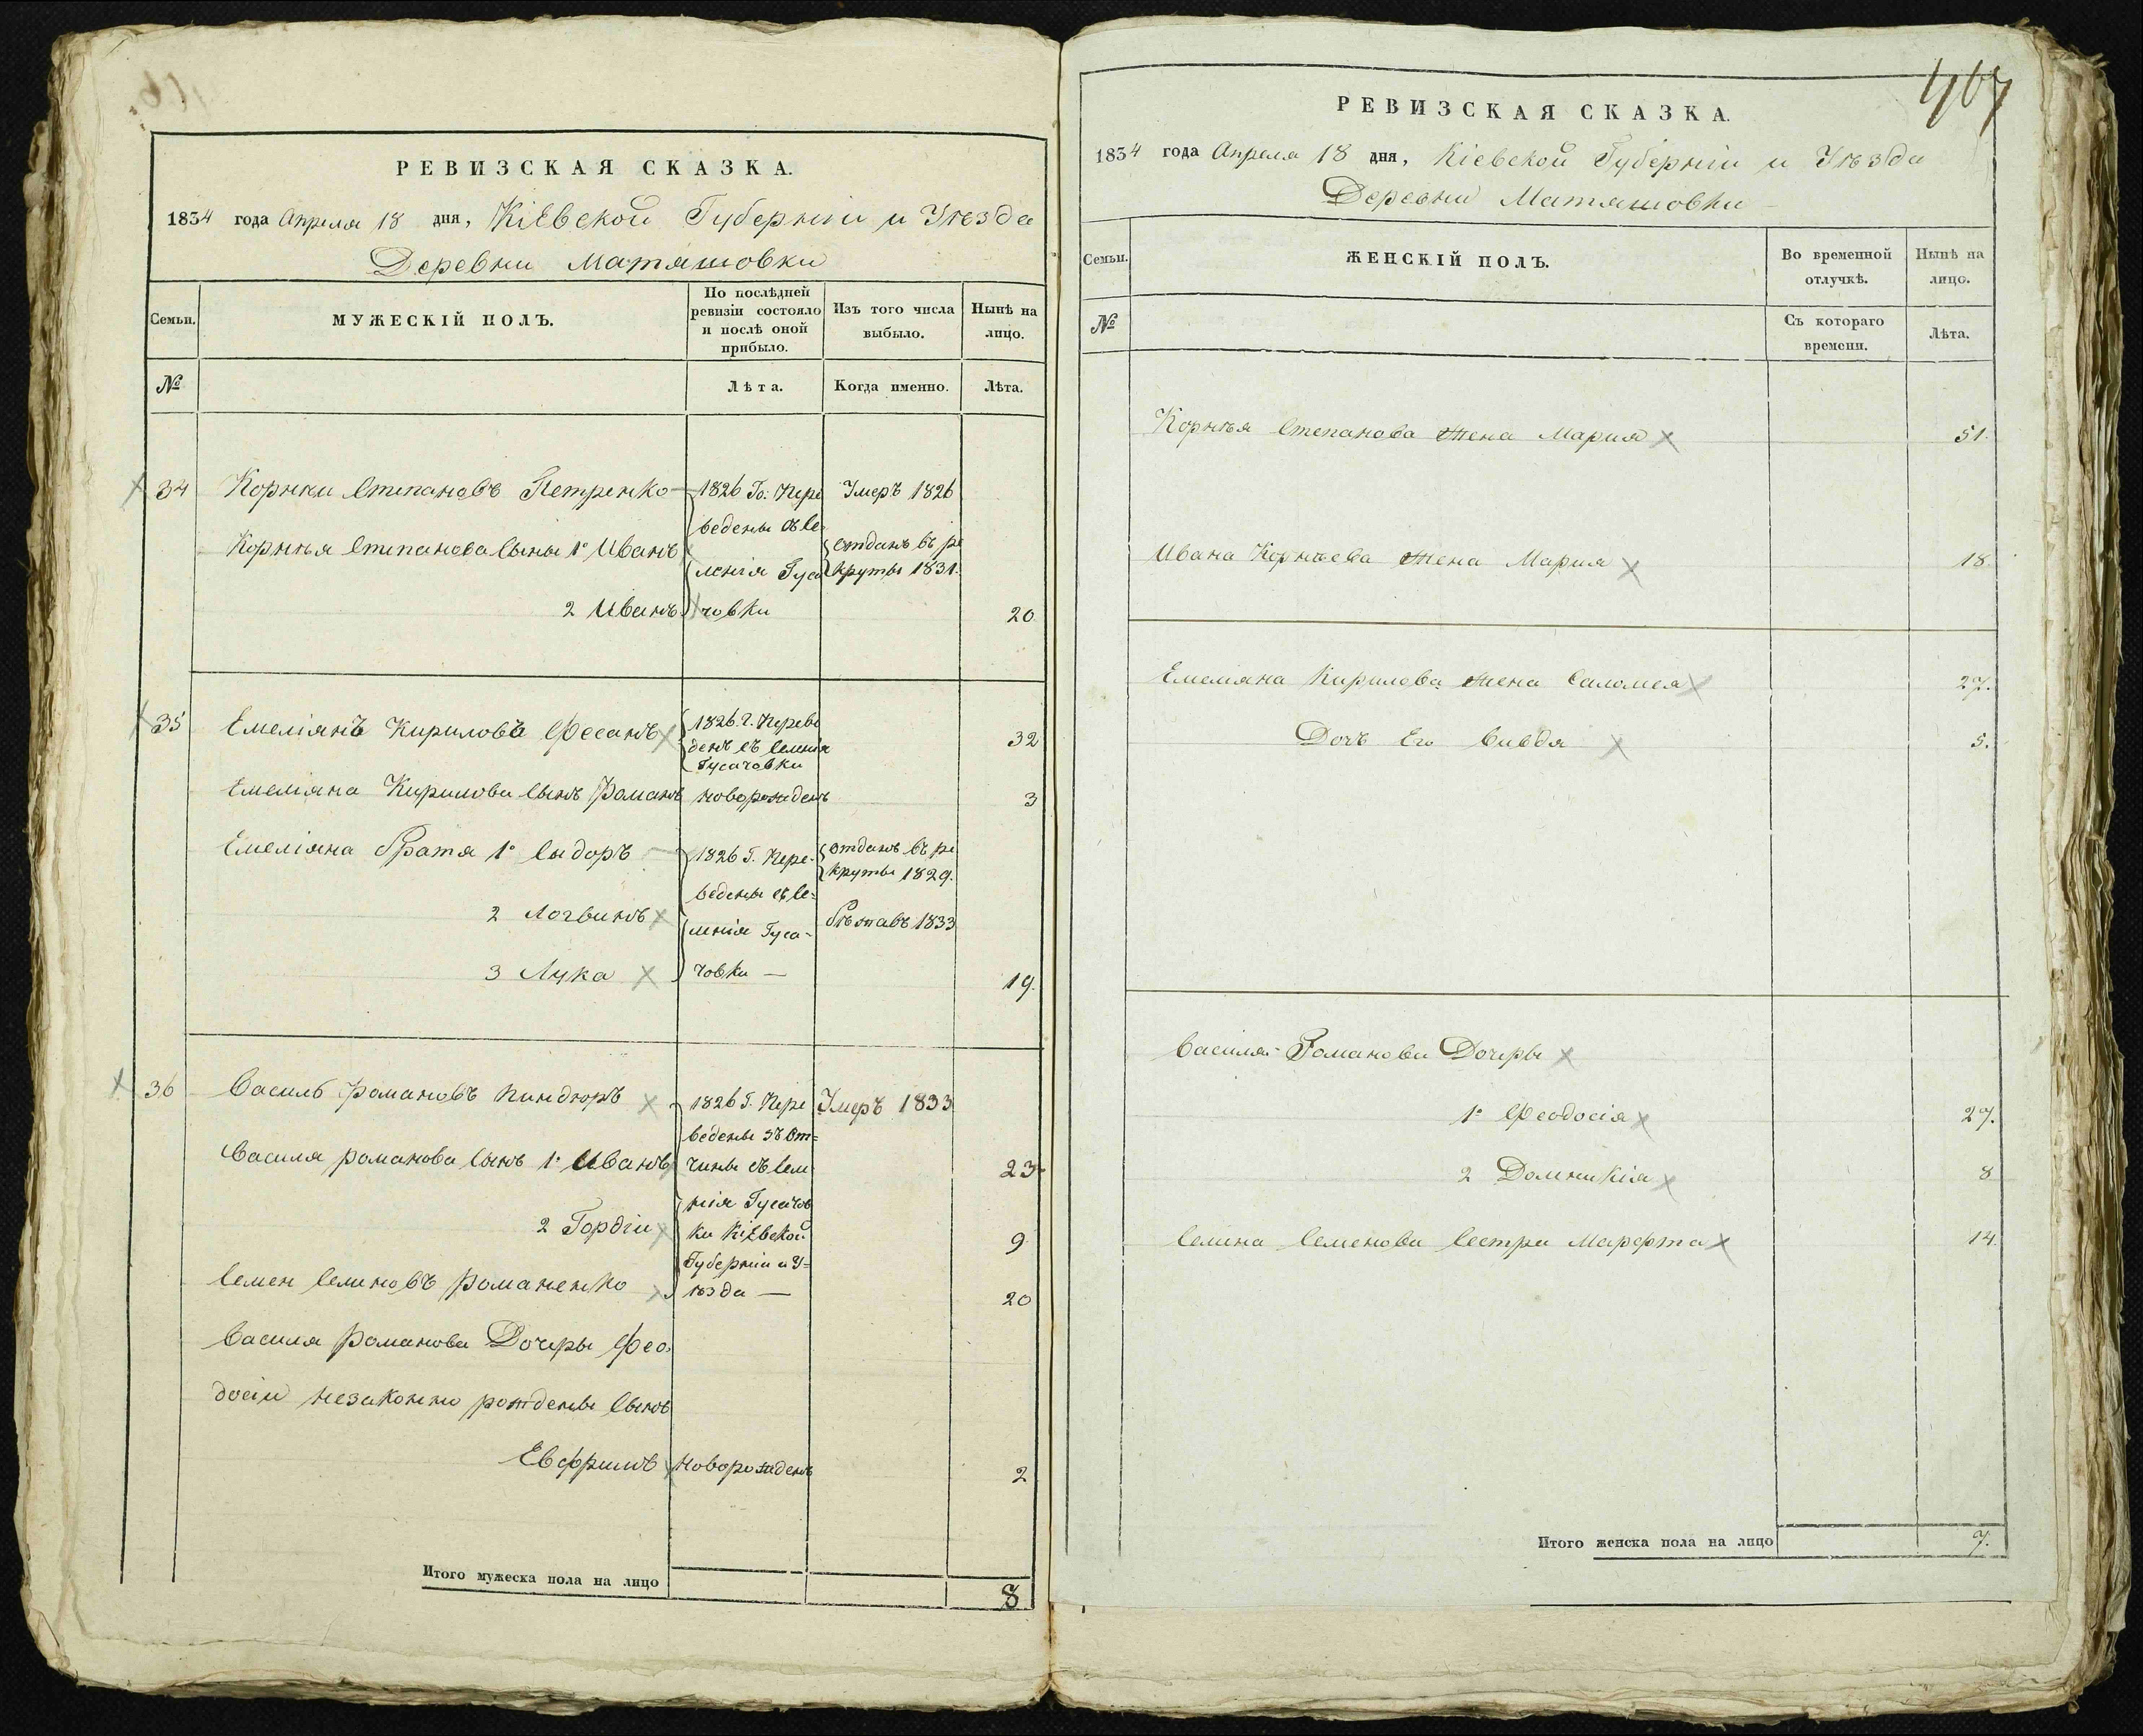 РЕВИЗСКАЯ СКАЗКА.
1834 года Апреля 18 дня, Кіевской Губерніи и Уѣзда
Деревни Матяшовки
Семьи.
МУЖЕСКІЙ ПОЛЪ.
По послѣдней
ревизіи состояло
и послѣ оной
прибыло.
Изъ того числа
выбыло.
Нынѣ на
лицо.
№
Лѣта.
Когда именно.
Лѣта.
34 Корнки Степановъ Петренко 1826 Го: Пере Умеръ 1826
ведены съ Се=
Корнѣя Степанова Сыны 1й Иванъ отданъ въ ре
ленія Гуса круты 1831.
2 Иванъ човки 20
35 Емеліянъ Кириловъ Фесанъ 1826 г. Переве 32
денъ съ Селенія
Гусачовки
Емеліяна Кирилова Сынъ Романъ новорожденъ 3
Емеліяна братя 1й Сыдоръ 1826 Г. Пере= отданъ въ ре
круты 1829.
ведены съ Се=
2 Логвинъ бѣжавъ 1833
ленія Гуса=
3 Лука човки — 19.
36 Василь Романовъ Киндюръ 1826 Г. Пере Умеръ 1833
ведены зъ От=
Василя Романова Сынъ 1й Иванъ чины съ Селе 23
нія Гусачов
2 Гордіи ки Кіевской 9
Губерніи и У=
Семен Семеновъ Романенко ѣзда — 20
Василя Романова Дочеры Фео=
досіи незаконно рождены Сынъ
Евфримъ новорожденъ 2
Итого мужеска пола на лицо 8
407
РЕВИЗСКАЯ СКАЗКА.
1834 года Апреля 18 дня, Кіевской Губерніи и Уѣзда
Деревни Матяшовки
Семьи.
ЖЕНСКІЙ ПОЛЪ.
Во временной
отлучкѣ.
Нынѣ на
лицо.
№
Съ котораго
времени.
Лѣта.
Корнѣя Степанова Жена Мария 51.
Ивана Корнѣева Жена Мария 18.
Емеліяна Кирилова Жена Саломея 27.
Дочъ Его Вивдя 5.
Василя Романова Дочеры
1й Феодосія 27.
2 Доминикія 8
Семена Семенова Сестра Марфта 14.
Итого женска пола на лицо 7.